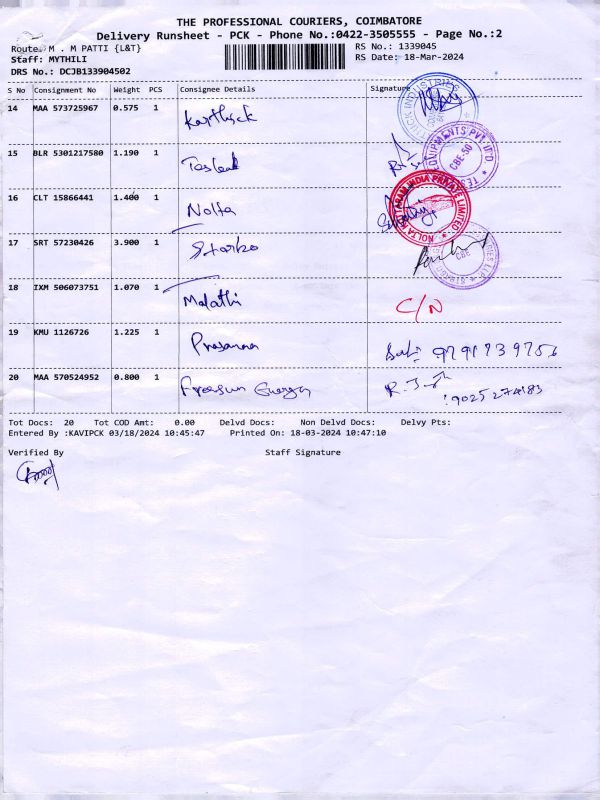 THE PROFESSIONAL COURIERS, COIMBATORE
Delivery Runsheet - PCK - Phone No.:0422-3505555 - Page No.:2
Route: M . M PATTI {L&T} RS No.: 1339045
Staff: MYTHILI RS Date: 18-Mar-2024
DRS No.: DCJB133904502
S No Consignment No Weight PCS Consignee Details Signature
14 MAA 573725967 0.575 1 Karthick
15 BLR 5301217580 1.190 1
16 CLT 15866441 1.400 1 Nolta
NOLTA INDIA PRIVATE LIMITED
17 SRT 57230426 3.900 1
18 IXM 506073751 1.070 1 Malathi C/N
19 KMU 1126726 1.225 1 Prasanna 9791739756
20 MAA 570524952 0.800 1
Tot Docs: 20 Tot COD Amt: 0.00 Delvd Docs: Non Delvd Docs: Delvy Pts:
Entered By :KAVIPCK 03/18/2024 10:45:47 Printed On: 18-03-2024 10:47:10
Verified By Staff Signature